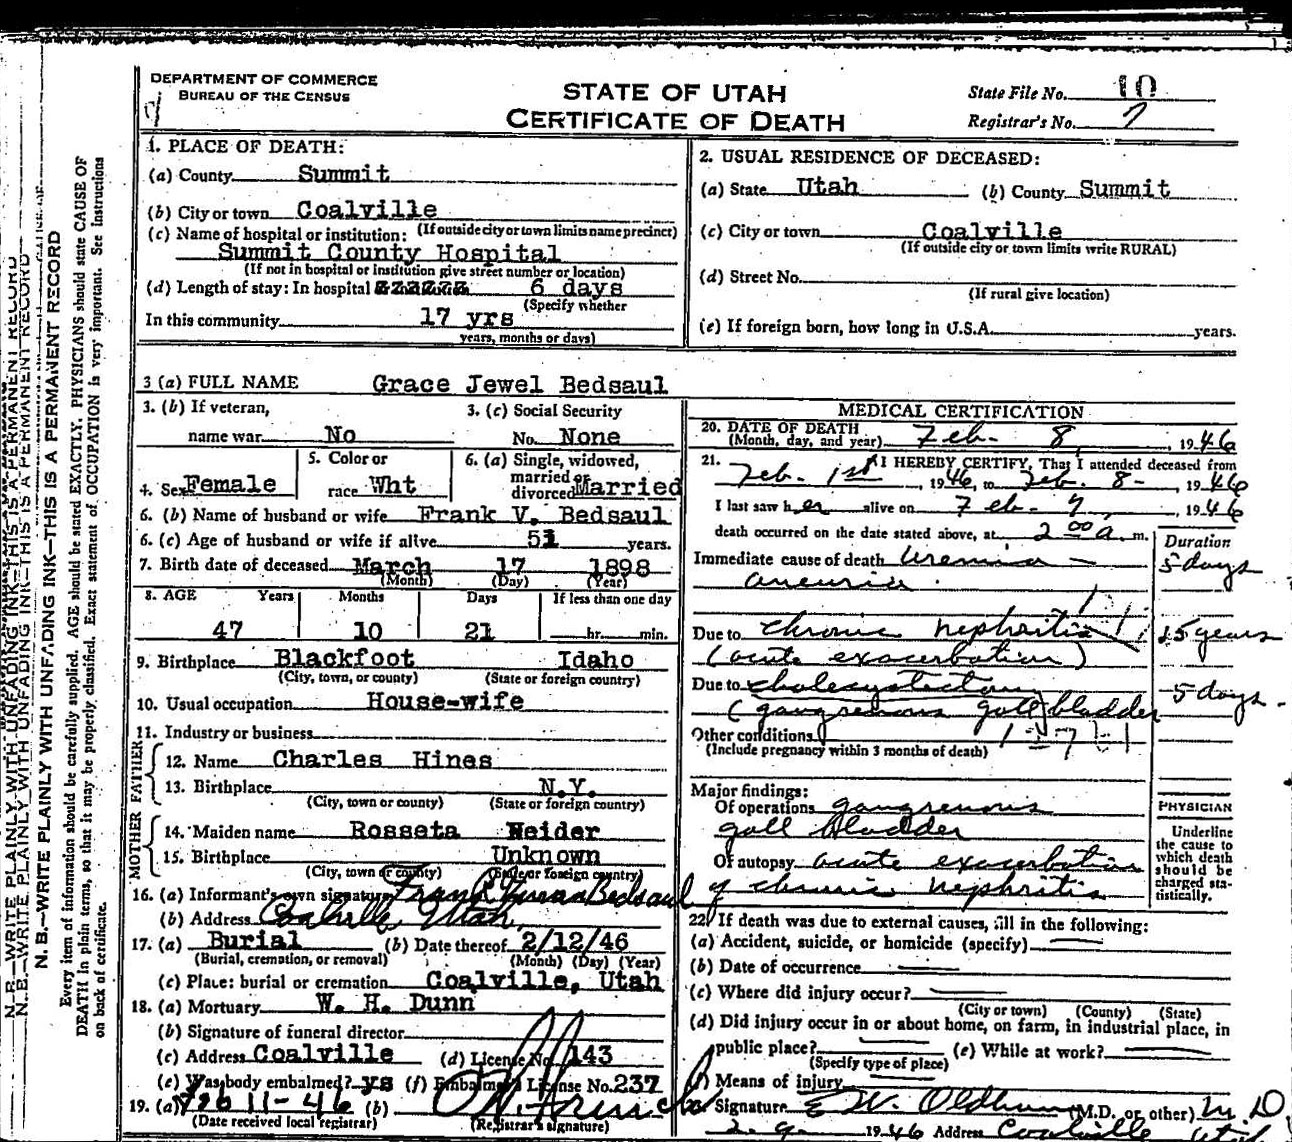 DEPARTMENT OF COMMERCE
BUREAU OF THE CENSUS
STATE OF UTAH
CERTIFICATE OF DEATH
State File No. 10
Registrar's No. 7
1. PLACE OF DEATH:
(a) County Summit
(b) City or town Coalville
(If outside city or town limits name precinct)
(c) Name of hospital or institution:
Summit County Hospital
(If not in hospital or institution give street number or location)
(d) Length of stay: In hospital 6 days
(Specify whether
In this community 17 yrs
years, months or days)
2. USUAL RESIDENCE OF DECEASED:
(a) State Utah (b) County Summit
(c) City or town Coalville
(If outside city or town limits write RURAL)
(d) Street No.
(If rural give location)
(e) If foreign born, how long in U.S.A. years.
3 (a) FULL NAME Grace Jewel Bedsaul
3. (b) If veteran,
name war No
3. (c) Social Security
No. None
4. Sex Female
5. Color or
race Wht
6. (a) Single, widowed,
married or
divorced Married
6. (b) Name of husband or wife Frank V. Bedsaul
6. (c) Age of husband or wife if alive 51 years.
7. Birth date of deceased March 17 1898
(Month) (Day) (Year)
8. AGE Years Months Days If less than one day
47 10 21 hr. min.
9. Birthplace Blackfoot Idaho
(City, town, or county) (State or foreign country)
10. Usual occupation House-wife
11. Industry or business
FATHER
12. Name Charles Hines
13. Birthplace N.Y.
(City, town or county) (State or foreign country)
MOTHER
14. Maiden name Rosseta Neider
15. Birthplace Unknown
(City, town or county) (State or foreign country)
16. (a) Informant's own signature Frank Bedsaul
(b) Address Coalville Utah,
17. (a) Burial (b) Date thereof 2/12/46
(Burial, cremation, or removal) (Month) (Day) (Year)
(c) Place: burial or cremation Coalville, Utah
18. (a) Mortuary W. H. Dunn
(b) Signature of funeral director
(c) Address Coalville (d) License No. 143
(e) Was body embalmed? ys (f) Embalmer's License No. 237
19. (a) Feb 11-46 (b)
(Date received local registrar) (Registrar's signature)
MEDICAL CERTIFICATION
20. DATE OF DEATH
(Month, day, and year) Feb. 8, 1946
21. I HEREBY CERTIFY, That I attended deceased from
Feb. 1st, 1946, to Feb. 8-, 1946
I last saw her alive on Feb. 7, 1946
death occurred on the date stated above, at 2 00 a. m.
Duration
Immediate cause of death Uremia - 5 days
aneuria.
Due to chronic nephritis 15 years
(acute exacerbation)
Due to cholecystectomy 5 days.
(gangrenous gall bladder
Other conditions
(Include pregnancy within 3 months of death)
Major findings:
Of operations gangrenous
gall bladder
Of autopsy acute exacerbation
of chronic nephritis
PHYSICIAN
Underline
the cause to
which death
should be
charged sta-
tistically.
22. If death was due to external causes, fill in the following:
(a) Accident, suicide, or homicide (specify)
(b) Date of occurrence
(c) Where did injury occur?
(City or town) (County) (State)
(d) Did injury occur in or about home, on farm, in industrial place, in
public place? (e) While at work?
(Specify type of place)
(f) Means of injury
23. Signature E. W. Oldham (M.D. or other) M.D.
2-9- 1946 Address Coalville Utah
N. B.—WRITE PLAINLY WITH UNFADING INK—THIS IS A PERMANENT RECORD
N. B.—WRITE PLAINLY WITH UNFADING INK—THIS IS A PERMANENT RECORD
N. B.—WRITE PLAINLY WITH UNFADING INK—THIS IS A PERMANENT RECORD
Every item of information should be carefully supplied. AGE should be stated EXACTLY. PHYSICIANS should state CAUSE OF
DEATH in plain terms, so that it may be properly classified. Exact statement of OCCUPATION is very important. See instructions
on back of certificate.